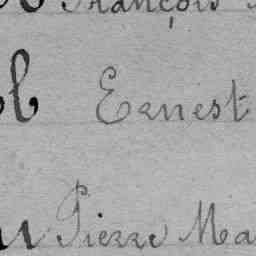 François
Ernest
Pierre Ma